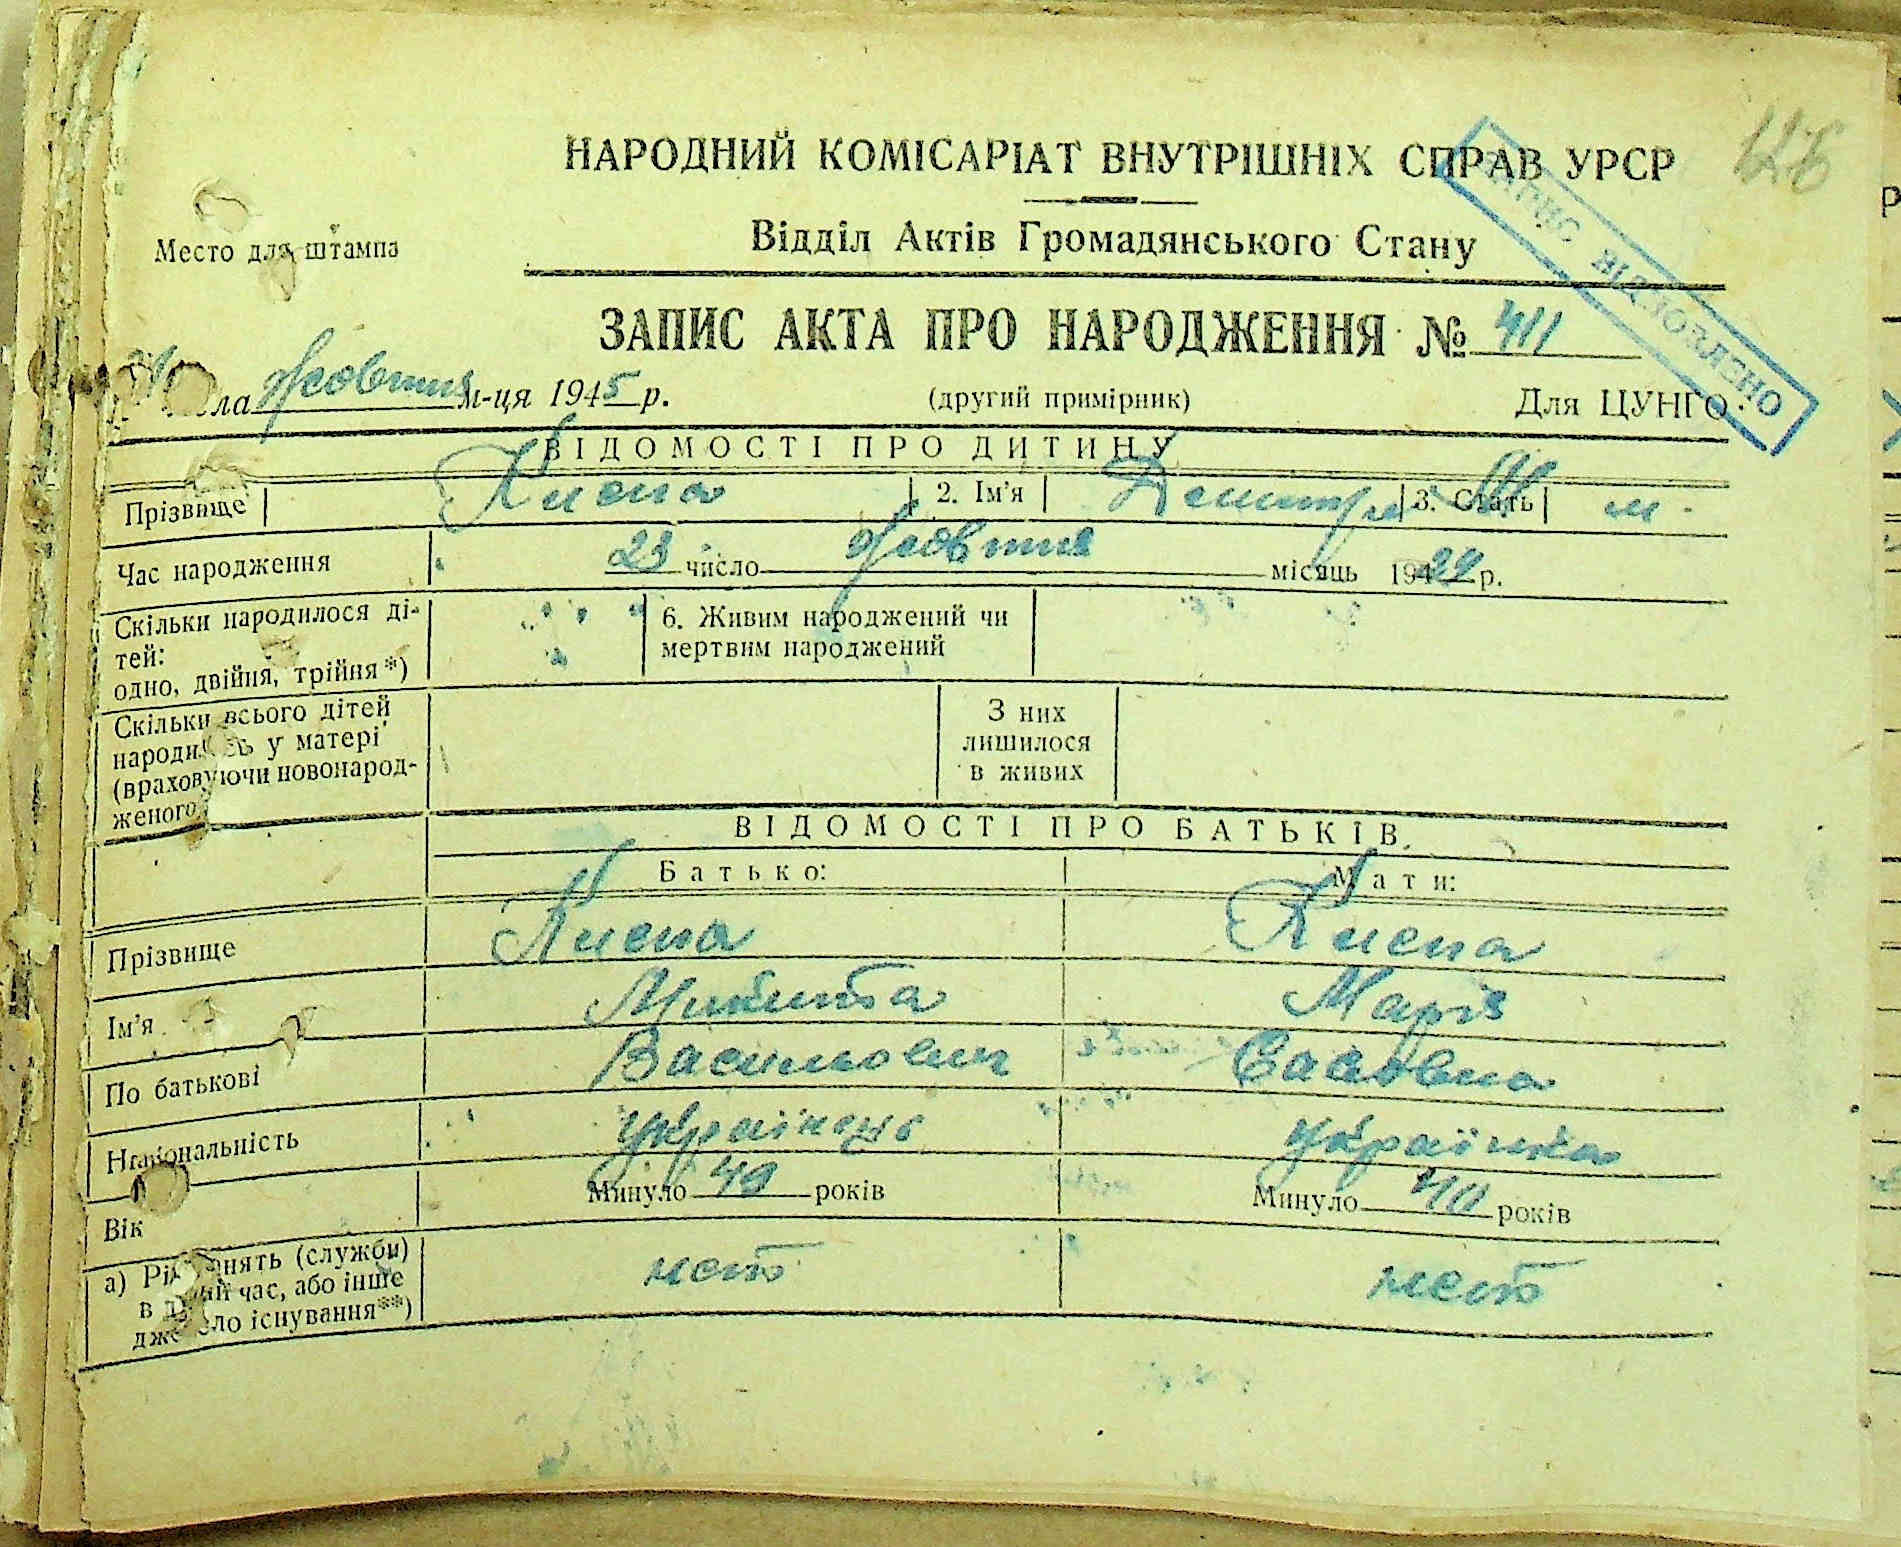 126
НАРОДНИЙ КОМІСАРІАТ ВНУТРІШНІХ СПРАВ УРСР
Место для штампа
Відділ Актів Громадянського Стану
ЗАПИС ВІДНОВЛЕНО
ЗАПИС АКТА ПРО НАРОДЖЕННЯ № 411
жовтня м-ця 1945 р. (другий примірник) Для ЦУНГО
ВІДОМОСТІ ПРО ДИТИНУ
Прізвище 2. Ім'я Дмитри 3. Стать м.
Час народження 23 число жовтня місяць 1924 р.
Скільки народилося ді-
тей:
одно, двійня, трійня*)
6. Живим народжений чи
мертвим народжений
Скільки всього дітей
народилось у матері
(враховуючи новонарод-
женого)
З них
лишилося
в живих
ВІДОМОСТІ ПРО БАТЬКІВ.
Батько: Мати:
Прізвище
Ім'я Микита Марія
По батькові Васильович Савовна
Національність українець українка
Вік Минуло 49 років Минуло 40 років
а) Рід занять (служби)
в даний час, або інше
джерело існування**)
нет нет